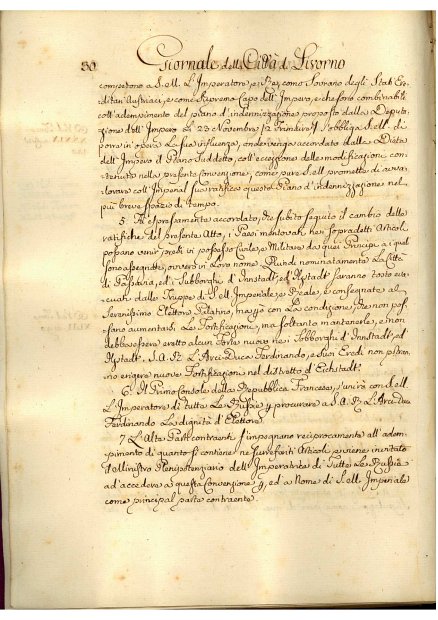 50 Giornale della Città di Livorno
competono a S. M. L'Imperatore, e Re, come Sovrano degli Stati Ere
ditarj Austriaci, e come Supremo Capo dell'Impero, e che sono combinabili
coll'adempimento del piano d'indennizzazione proposto dalla Deputa
zione dell'Impero li 23 Novembre 12 S'obbliga S. M. di
porre in opera la sua influenza, onde venga accordato dalla Dieta
dell'Impero il Piano Suddetto, coll'eccezione delle modificazioni con
tenute nella presente convenzione, come pure S. M. promette di accor
dare coll'Imperial sua ratifica questo Piano d'indennizzazione nel
più breve spazio di tempo.
5. È espressamente accordato, che subito seguito il cambio delle
ratifiche del presente Atto, i Paesi mentovati nei sopradetti Articoli
possano venir presi in possesso Civile, e Militare da quei Principi a i quali
sono assegnati, ovvero in loro nome. Quindi nominatamente La Città
di Passavia, ed i Subborghi d'Innstadt, ed Ilzstadt saranno tosto eva
cuati dalle Truppe di S. M. Imperiale, e Reale, e consegnate al
Serenissimo Elettore Palatino, ma con La condizione, che non pos
sano aumentarsi Le Fortificazioni, ma soltanto mantenerle, e non
debba essere eretto alcun Forte nuovo nei Sobborghi d'Innstadt, ed
Ilzstadt. S. A. R. L'Arci-Duca Ferdinando, e suoi Eredi non potran
no erigere nuove Fortificazioni nel distretto d'Eichstadt.
6. Il Primo Console della Repubblica Francese, s'unirà con S. M.
L'Imperatore di tutte Le Russie per procurare a S. A. R. L'Arci-Duca
Ferdinando La dignità d'Elettore.
7 L'Alte Parti contraenti s'impegnano reciprocamente all'adem
pimento di quanto si contiene ne surriferiti Articoli, e viene invitato
il Ministro Plenipotenziario dell'Imperatore di Tutte Le Russie
ad accedere a questa Convenzione, ed a Nome di S. M. Imperiale
come principal parte contraente.